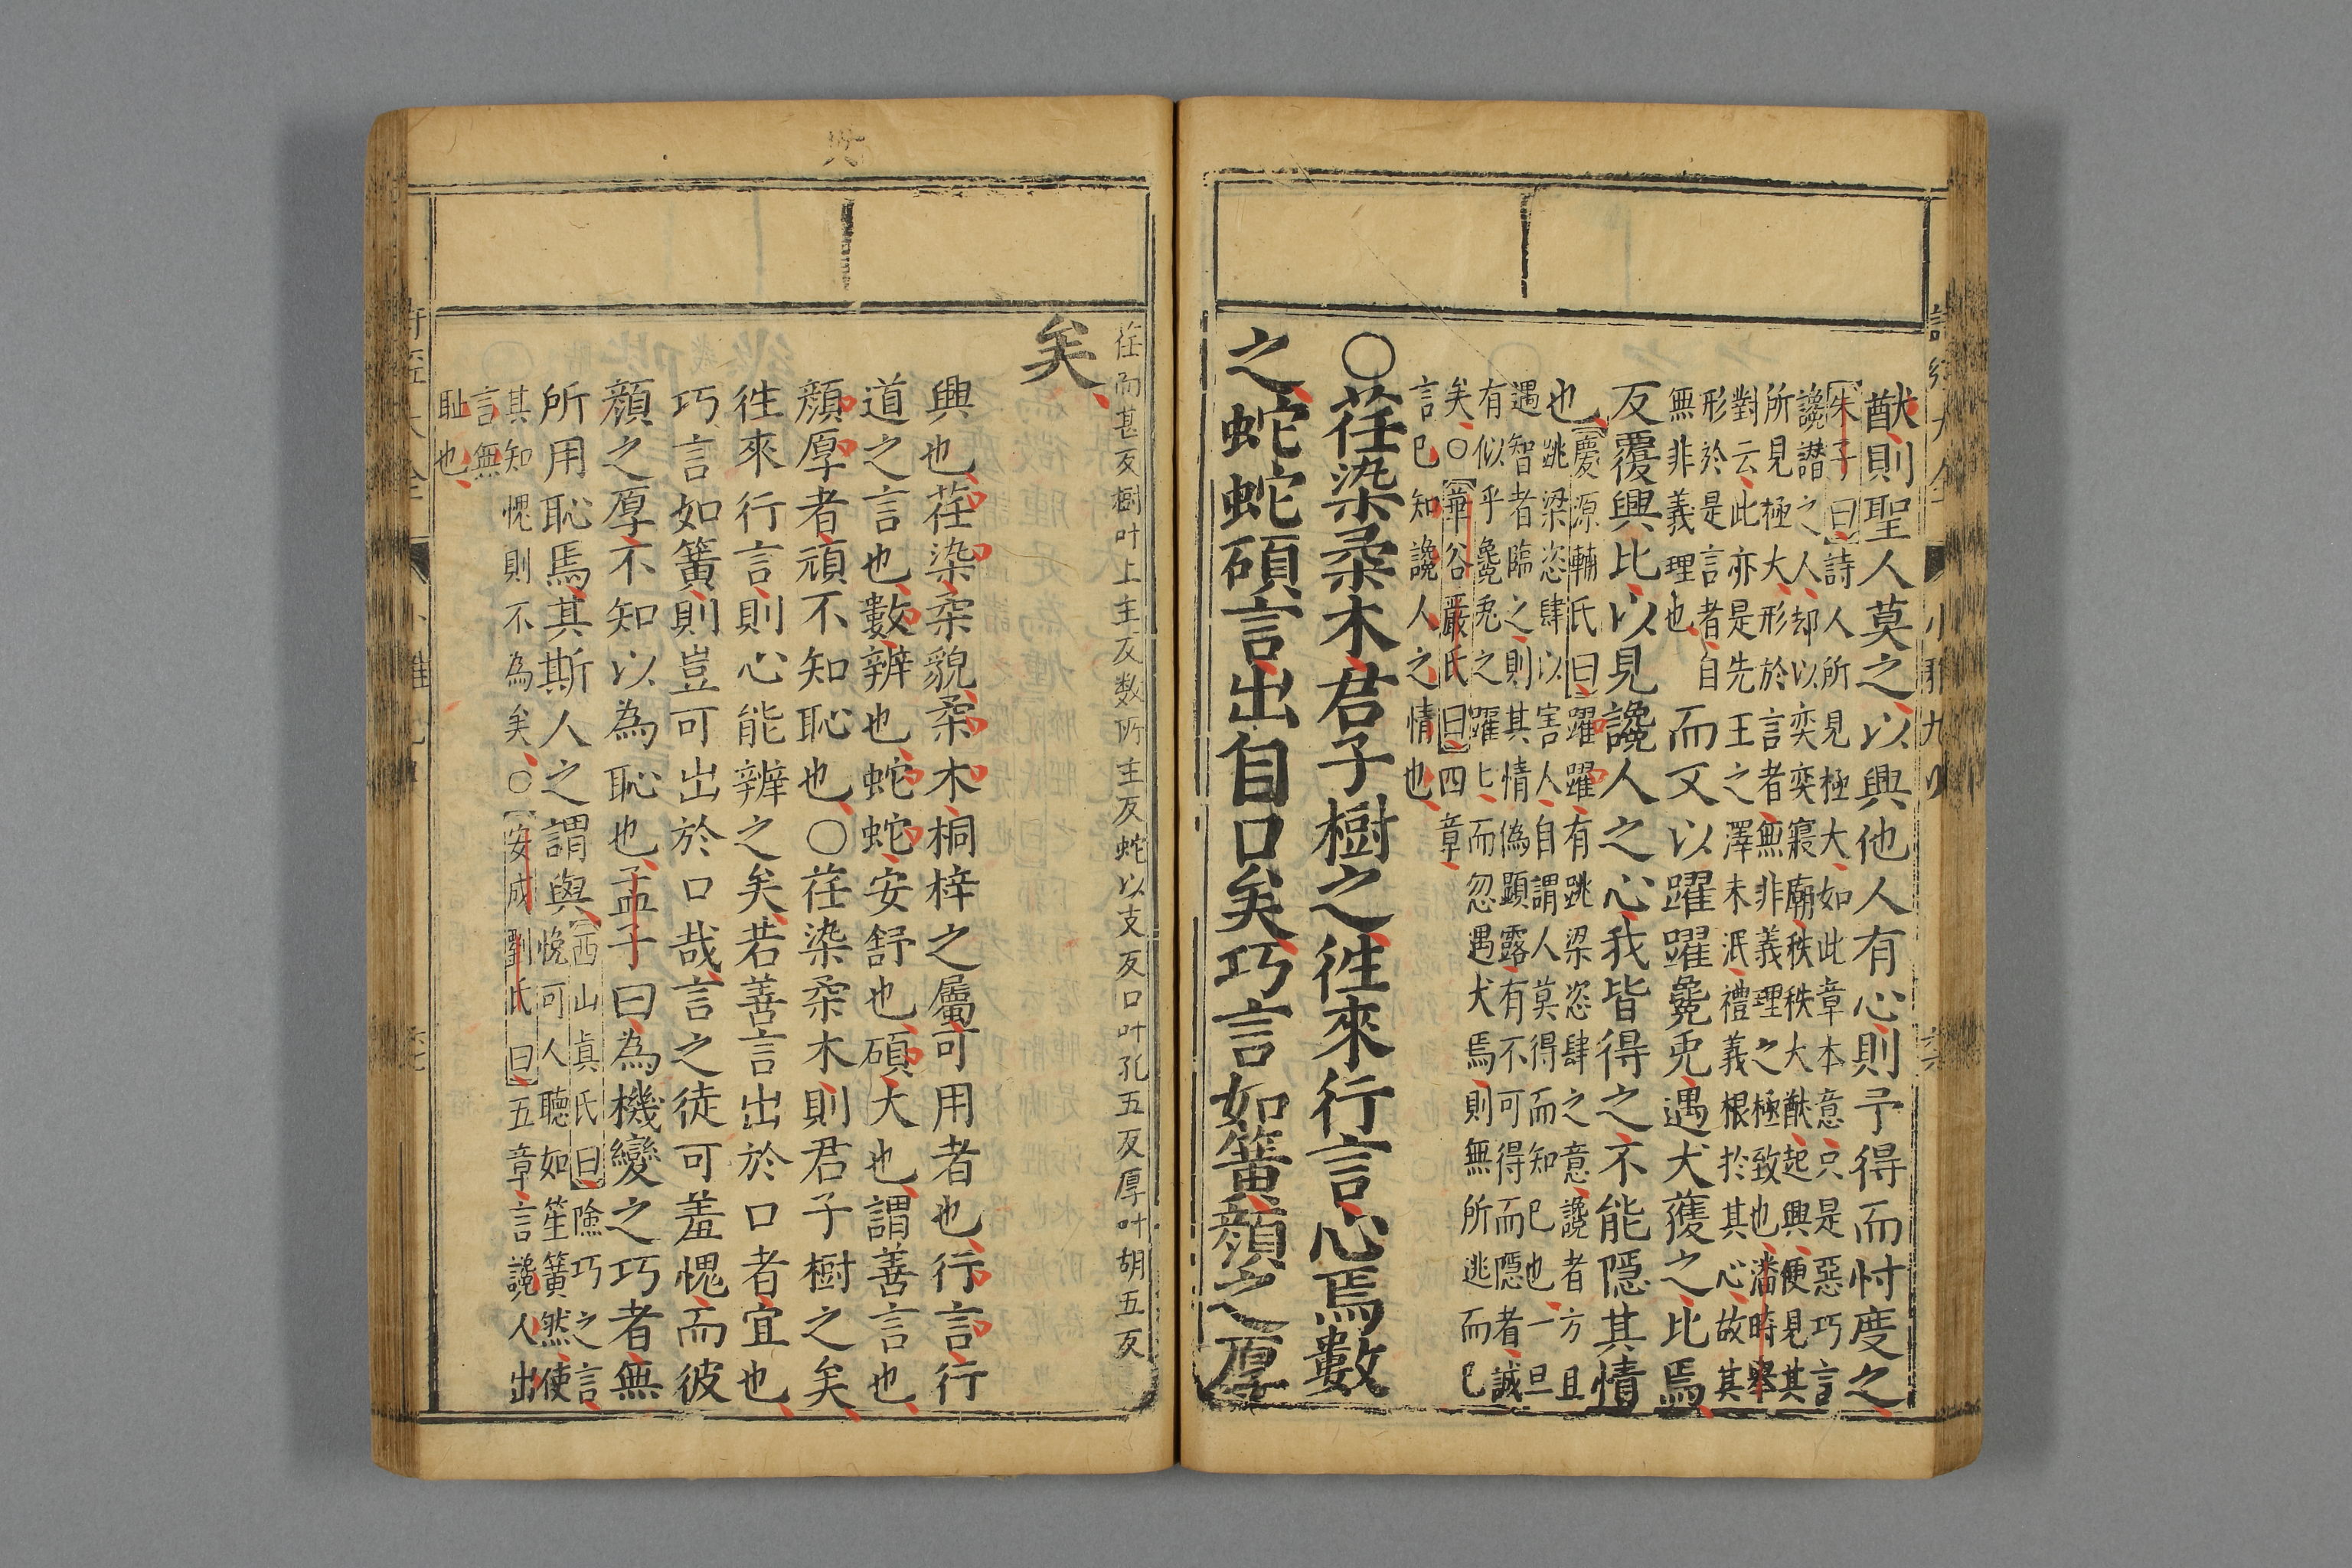 猷則聖人莫之以興他人有心則予得而忖度之
朱子曰詩人所見極大如此章本意只是惡巧言
讒譖之人却以奕奕寢廟秩秩大猷起興便見其
所見極大形於言者無非義理之極致也潘時舉
對云此亦是先王之澤未泯禮義根於其心故其
形於是言者自
無非義理也
而又以躍躍毚兎遇犬獲之比焉
反覆興比以見讒人之心我皆得之不能隱其情
也
慶源輔氏曰躍躍有跳梁恣肆之意讒者方且
跳梁恣肆以害人自謂人莫得而知已也一旦
遇智者臨之則其情偽顕露有不可得而隱者誠
有似乎毚兎之躍匕而忽遇犬焉則無所逃而已
矣○華谷嚴氏曰四章
言已知讒人之情也
○荏染柔木君子樹之徃來行言心焉數
之蛇蛇碩言出自口矣巧言如簧顔之厚
荏而甚反樹叶上主反数所主反蛇以支反口叶孔五反厚叶胡五反
矣
興也荏染柔貌柔木桐梓之屬可用者也行言行
道之言也數辨也蛇蛇安舒也碩大也謂善言也
顔厚者頑不知恥也○荏染柔木則君子樹之矣
徃來行言則心能辨之矣若善言出於口者宜也
巧言如簧則豈可出於口哉言之徒可羞愧而彼
顔之厚不知以為恥也孟子曰為機變之巧者無
所用恥焉其斯人之謂與
西山真氏曰險巧之言
悅可人聽如笙簧然使
其知愧則不為矣○安成劉氏曰五章言讒人出
言無
耻也